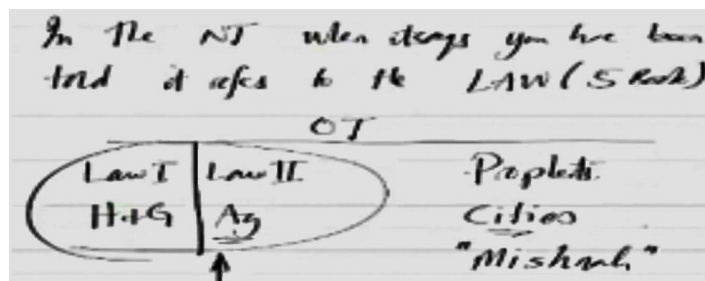 In the NT when it says you have been
told it refers to the LAW (5 Books)
OT
Law I Law II Prophets
H+G Ag Cities
"Mishnah"